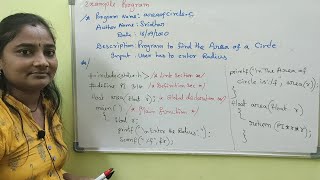 Example Program
/* Program name: areaofcircle.c
Author Name: Sridhar
Date:
Description: Program to find the Area of a Circle
Input: User has to enter Radius
*/
#include<stdio.h> /* Link Section */
#define PI 3.14 /* Definition Sec */
float area(float r); /* Global declaration */
main() /* Main function */
{ float r;
printf("\n Enter the Radius:");
scanf("%f", &r);
printf("\n The Area of
circle is: %f", area(r));
}
float area(float r)
{
return (PI*r*r);
}